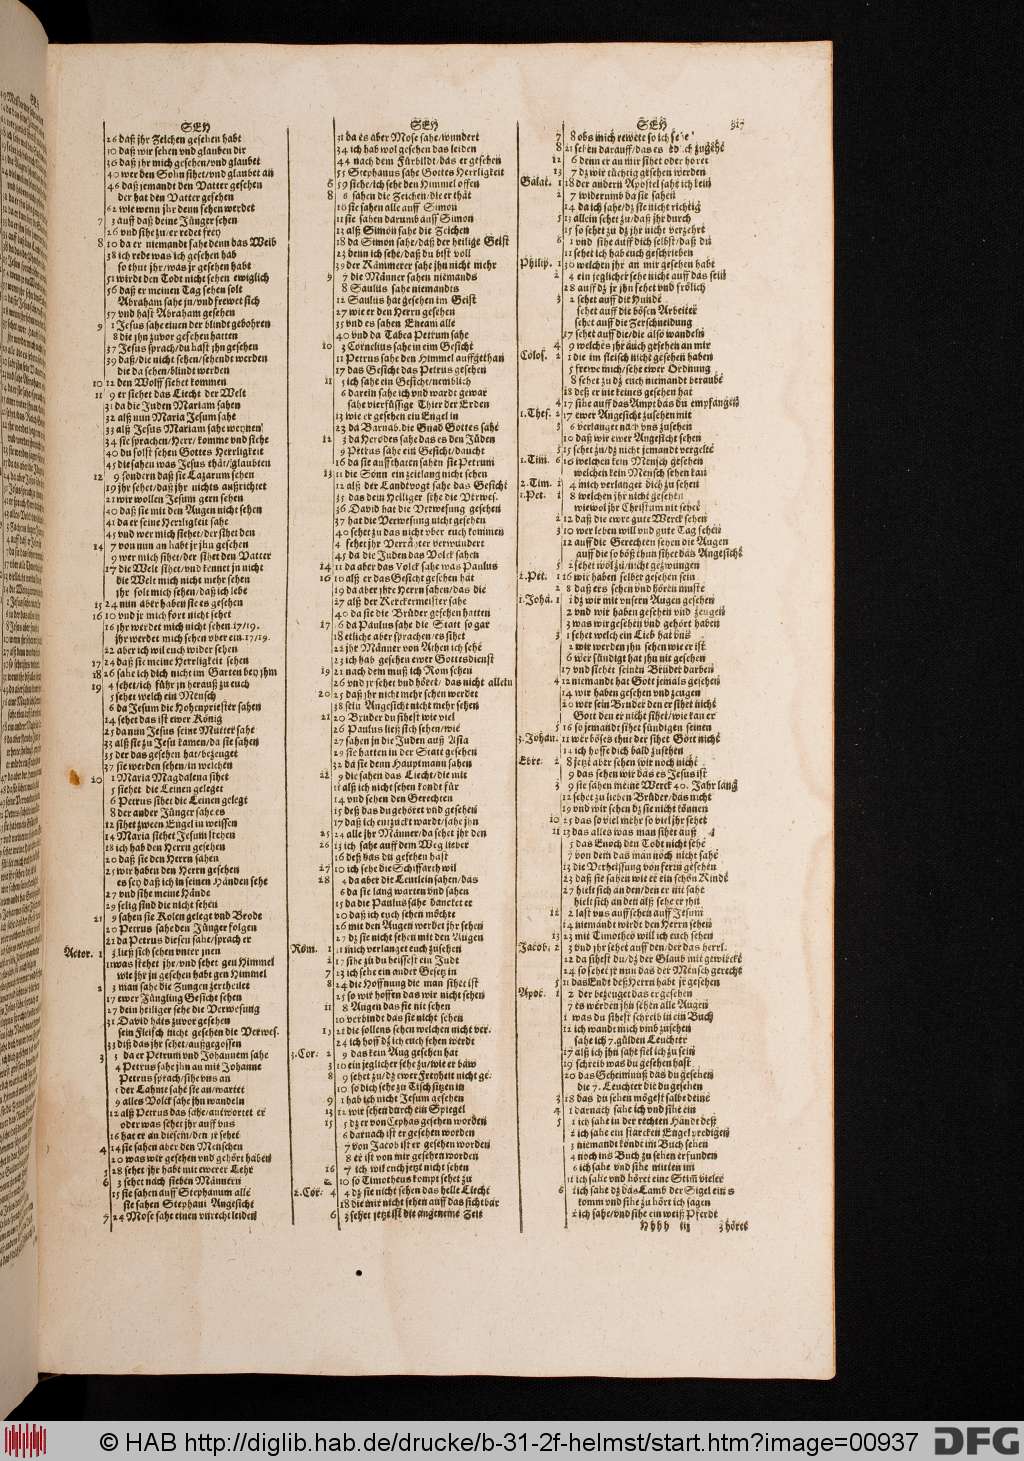 SEH
26 daß jhr Zeichen gesehen habt
30 daß wir sehen und glauben dir
36 daß jhr mich gesehen/vnd glaubet
40 wer den Sohn sihet/vnd glaubet an
46 daß jemandt den Vatter gesehen
der hat den Vatter gesehen
62 wie wenn jhr denn sehen werdet
7 3 auff daß deine Jünger sehen
26 vnd sihe zu/er redet frey
8 10 da er niemandt sahe denn das Weib
38 ich rede was ich gesehen hab
so thut jhr/was jr gesehen habt
51 wirdt den Todt nicht sehen ewiglich
56 daß er meinen Tag sehen solt
Abraham sahe jn/vnd frewet sich
57 vnd hast Abraham gesehen
9 1 Jesus sahe einen der blindt gebohren
8 die jhn zuvor gesehen hatten
37 Jesus sprach/du hast jhn gesehen
39 daß/die nicht sehen/sehendt werden
die da sehen/blindt werden
10 12 den Wolff siehet kommen
11 9 er siehet das Liecht der Welt
31 da die Juden Mariam sahen
32 alß nun Maria Jesum sahe
33 alß Jesus Mariam sahe weynen
34 sie sprachen/Herr/komme vnd siehe
40 du solst sehen Gottes Herrligkeit
45 die sahen was Jesus thät/glaubten
12 9 sondern daß sie Lazarum sehen
19 jhr sehet/daß jhr nichts außrichtet
21 wir wollen Jesum gern sehen
40 daß sie mit den Augen nicht sehen
41 da er seine Herrligkeit sahe
45 vnd wer mich siehet/der sihet den
14 7 von nun an habt jr jhn gesehen
9 wer mich sihet/der sihet den Vatter
17 die Welt sihet/vnd kennet jn nicht
die Welt mich nicht mehr sehen
jhr solt mich sehen/daß ich lebe
15 24 nun aber haben sie es gesehen
16 10 vnd jr mich fort nicht sehet
16 jhr werdet mich nicht sehen.17/19.
jhr werdet mich sehen vber ein.17/19.
22 aber ich wil euch wider sehen
17 24 daß sie meine Herrligkeit sehen
18 26 sahe ich dich nicht im Garten bey jhm
19 4 sehet/ich führ jn herauß zu euch
5 sehet welch ein Mensch
6 da Jesum die Hohenpriester sahen
14 sehet das ist ewer König
25 da nun Jesus seine Mutter sahe
33 alß sie zu Jesu kamen/da sie sahen
35 der das gesehen hat/bezeuget
37 sie werden sehen/in welchen
20 1 Maria Magdalena sihet
5 siehet die Leinen geleget
6 Petrus sihet die Leinen gelegt
8 der ander Jünger sahe es
12 sihet zween Engel in weissen
14 Maria siehet Jesum stehen
18 ich hab den Herrn gesehen
20 daß sie den Herrn sahen
25 wir haben den Herrn gesehen
es sey daß ich in seinen Händen sehe
27 vnd sihe meine Hände
29 selig sind die nicht sehen
21 9 sahen sie Kolen gelegt vnd Brode
20 Petrus sahe den Jünger folgen
21 da Petrus diesen sahe/sprach er
Actor. 1 3 ließ sich sehen vnter jnen
11 was stehet jhr/vnd sehet gen Himmel
wie jhr jn gesehen habt gen Himmel
2 3 man sahe die Zungen zertheilet
17 ewer Jüngling Gesicht sehen
27 dein heiliger sehe die Verwesung
31 David hats zuvor gesehen
sein Fleisch nicht gesehen die Verwes.
33 diß das jhr sehet/außgegossen
3 3 da er Petrum vnd Johannem sahe
4 Petrus sahe jhn an mit Johanne
Petrus sprach/sihe vns an
5 der Lahme sahe sie an/wartet
9 alles Volck sahe jhn wandeln
12 alß Petrus das sahe/antwortet er
oder was sehet jhr auff vns
16 hat er an diesem/den jr sehet
4 14 sie sahen aber den Menschen
20 was wir gesehen vnd gehört haben
5 28 sehet jhr habt mit ewerer Lehr
6 3 sehet nach sieben Männern
15 sie sahen auff Stephanum alle
sie sahen Stephani Angesicht
7 24 Mose sahe einen vnrecht leiden
SEH
31 da es aber Mose sahe/wundert
34 ich hab wol gesehen das leiden
44 nach dem Fürbildt/das er gesehen
55 Stephanus sahe Gottes Herrligkeit
6 59 siehe/ich sehe den Himmel offen
8 6 sahen die Zeichen/die er thät
10 sie sahen alle auff Simon
11 sie sahen darumb auff Simon
13 alß Simon sahe die Zeichen
18 da Simon sahe/daß der heilige Geist
23 denn ich sehe/daß du bist voll
39 der Kämmerer sahe jhn nicht mehr
9 7 die Männer sahen niemands
8 Saulus sahe niemandts
12 Saulus hat gesehen im Geist
27 wie er den Herrn gesehen
35 vnd es sahen Eneam alle
40 vnd da Tabea Petrum sahe
10 3 Cornelius sahe in eim Gesicht
11 Petrus sahe den Himmel auffgethan
17 das Gesicht das Petrus gesehen
11 5 ich sahe ein Gesicht/nemblich
6 darein sahe ich vnd wardt gewar
sahe vierfüssige Thier der Erden
13 wie er gesehen ein Engel in
23 da Barnab. die Gnad Gottes sahe
12 3 da Herodes sahe das es den Jüden
9 Petrus sahe ein Gesicht/daucht
16 da sie auffthaten sahen sie Petrum
13 11 die Sonn ein zeitlang nicht sehen
12 alß der Landtvogt sahe das Gesicht
35 das dein Heiliger sehe die Verwes.
36 David hat die Verwesung gesehen
37 hat die Verwesung nicht gesehen
40 sehet zu das nicht vber euch kommen
4 sehet jhr Verräyter verwundert
45 da die Juden das Volck sahen
14 11 da aber das Volck sahe was Paulus
16 10 alß er das Gesicht gesehen hat
19 da aber jhre Herrn sahen/das die
27 alß der Kerckermeister sahe
40 da sie die Brüder gesehen hatten
17 6 da Paulus sahe die Statt so gar
18 etliche aber sprachen/es sihet
22 jhr Männer von Athen ich sehe
23 ich hab gesehen ewer Gottesdienst
19 21 nach dem muß ich Rom sehen
26 vnd jr sehet vnd höret/das nicht allein
20 25 daß jhr nicht mehr sehen werdet
38 sein Angesicht nicht mehr sehen
21 20 Bruder du sihest wie viel
26 Paulus ließ sich sehen/wie
27 sahen jn die Juden auß Asia
29 sie hatten in der Statt gesehen
32 da sie denn Hauptmann sahen
22 9 die sahen das Liecht/die mit
11 alß ich nicht sehen kondt für
14 vnd sehen den Gerechten
15 deß das du gehöret vnd gesehen
17 daß ich entzuckt wardt/sahe jhn
25 24 alle jhr Männer/da sehet jhr den
26 13 ich sahe auff dem Weg lieber
16 deß das du gesehen hast
27 10 ich sehe die Schiffarth wil
28 4 da aber die Leutlein sahen/das
6 da sie lang warten vnd sahen
15 da die Paulus sahe dancket er
20 daß ich euch sehen möchte
26 mit den Augen werdet jhr sehen
27 dz sie nicht sehen mit den Augen
Röm. 1 11 mich verlanget euch zusehen
2 17 sihe zu du heissest ein Jude
7 23 ich sehe ein ander Gesetz in
8 24 die Hoffnung die man sihet ist
25 so wir hoffen das wir nicht sehen
11 8 Augen das sie nit sehen
10 verbindt das sie nicht sehen
15 21 die sollens sehen welchen nicht ver.
24 ich hoff dz ich euch sehen werdt
1.Cor. 2 9 das kein Aug gesehen hat
3 10 ein jeglicher sehe zu/wie er baw
8 9 sehet zu/dz ewer Freyheit nicht ge.
10 so dich sehe zu Tisch sitzen in
9 1 hab ich nicht Jesum gesehen
13 12 wir sehen durch ein Spiegel
15 5 dz er von Cephas gesehen worden
6 darnach ist er gesehen worden
7 von Jacob ist er gesehen worden
8 er ist von mir gesehen worden
16 7 ich wil euch jetzt nicht sehen
10 so Timotheus kompt sehet zu
2.Cor. 4 4 dz sie nicht sehen das helle Liecht
18 die mir nicht sehen auff das sichtbar
6 2 sehet jetzt ist die angeneme Zeit
SEH 317
7 8
8 21 sehen darauff/das es
12 6 denn er an mir sihet oder höret
13 7 dz wir tüchtig gesehen werden
Galat. 1 18 der andern Apostel sahe ich kein
2 7 widerumb da sie sahen
14 da ich sahe/dz sie nicht richtig
5 13 allein sehet zu/daß jhr durch
15 so sehet zu dz jhr nicht verzehrt
6 1 vnd sihe auff dich selbst/daß du
11 sehet ich hab euch geschrieben
Philip. 1 30 welchen jhr an mir gesehen habt
2 4 ein jeglicher sehe nicht auff das sein
28 auff dz jr jhn sehet vnd frölich
3 2 sehet auff die Hunde
sehet auff die bösen Arbeiter
sehet auff die Zerschneidung
17 sehet auff die/die also wandeln
4 9 welches jhr auch gesehen an mir
Colos. 2 1 die im fleisch nicht gesehen haben
5 frewe mich/sehe ewer Ordnung
8 sehet zu dz euch niemandt beraube
18 deß er nie keines gesehen hat
4 17 sihe auff das Ampt das du empfangen
1.Thes. 2 17 ewer Angesicht zusehen mit
3 6 verlanget nach vns zusehen
10 daß wir ewer Angesicht sehen
5 15 sehet zu/dz nicht jemandt vergelte
1.Tim. 6 16 welchen kein Mensch gesehen
welchen kein Mensch sehen kan
2.Tim. 1 4 mich verlanget dich zu sehen
1.Pet. 1 8 welchen jhr nicht gesehen
wiewol jhr Christum nit sehet
2 12 daß die ewre gute Werck sehen
3 10 wer leben will vnd gute Tag sehen
12 auff die Gerechten sehen die Augen
auff die so böß thun sihet das Angesicht
5 2 sehet wol zu/nicht gezwungen
2.Pet. 1 16 wir haben selber gesehen sein
2 8 daß ers sehen vnd hören muste
1.Joha. 1 1 dz wir mit vnsern Augen gesehen
2 vnd wir haben gesehen vnd zeugen
3 was wir gesehen vnd gehört haben
3 1 sehet welch ein Lieb hat vns
2 wir werden jhn sehen wie er ist
6 wer sündigt hat jhn nit gesehen
17 vnd siehet seinen Bruder darben
4 12 niemandt hat Gott jemals gesehen
14 wir haben gesehen vnd zeugen
20 wer sein Bruder den er sihet nicht
Gott den er nicht sihet/wie kan er
5 16 so jemandt sihet sündigen seinen
3.Johan. 11 wer böses thut der sihet Gott nicht
14 ich hoffe dich bald zusehen
Ebre. 2 8 jetzt aber sehen wir noch nicht
9 das sehen wir das es Jesus ist
3 9 sie sahen meine Werck 40. Jahr lang
12 sehet zu lieben Brüder/das nicht
19 vnd wir sehen dz sie nicht können
10 25 das so viel mehr so viel jhr sehet
11 13 das alles was man sihet auß
5 das Enoch den Todt nicht sehe
7 von dem das man noch nicht sahe
13 die Verheissung von fern gesehen
23 daß sie sahen wie er ein schön Kinde
27 hielt sich an den/den er nit sahe
hielt sich an den alß sehe er jhn
12 2 last vns auffsehen auff Jesum
14 niemandt würdt den Herrn sehen
13 23 mit Timotheo will ich euch sehen
Jacob. 2 3 vnd jhr sehet auff den/der das herrl.
22 da sihest du/dz der Glaub mit gewirckt
24 so sehet jr nun das der Mensch gerecht
5 11 das Endt deß Herrn habt jr gesehen
Apoc. 1 2 der bezeuget das er gesehen
7 es werden jhn sehen alle Augen
11 was du sihest schreib in ein Buch
12 ich wandt mich vmb zusehen
sahe ich 7. gülden Leuchter
17 alß ich jhn sahe fiel ich zu sein
19 schreib was du gesehen hast
20 das Geheimnuß das du gesehen
die 7. Leuchter die du gesehen
3 18 das du sehen mögest salbe deine
4 1 darnach sahe ich vnd sihe ein
5 1 ich sahe in der rechten Händt deß
2 ich sahe ein starcken Engel predigen
3 niemandt kondt im Buch sehen
4 noch ins Buch zu sehen erfunden
6 ich sahe vnd sihe mitten im
11 ich sahe vnd höret eine Stim vieler
6 1 ich sahe dz das Lamb der Sigel eins
komm vnd sihe zu hört ich sagen
2 ich sahe/vnd sihe ein weiß Pferdt
Hhhh iij 3 höret
© HAB http://diglib.hab.de/drucke/b-31-2f-helmst/start.htm?image=00937
DFG